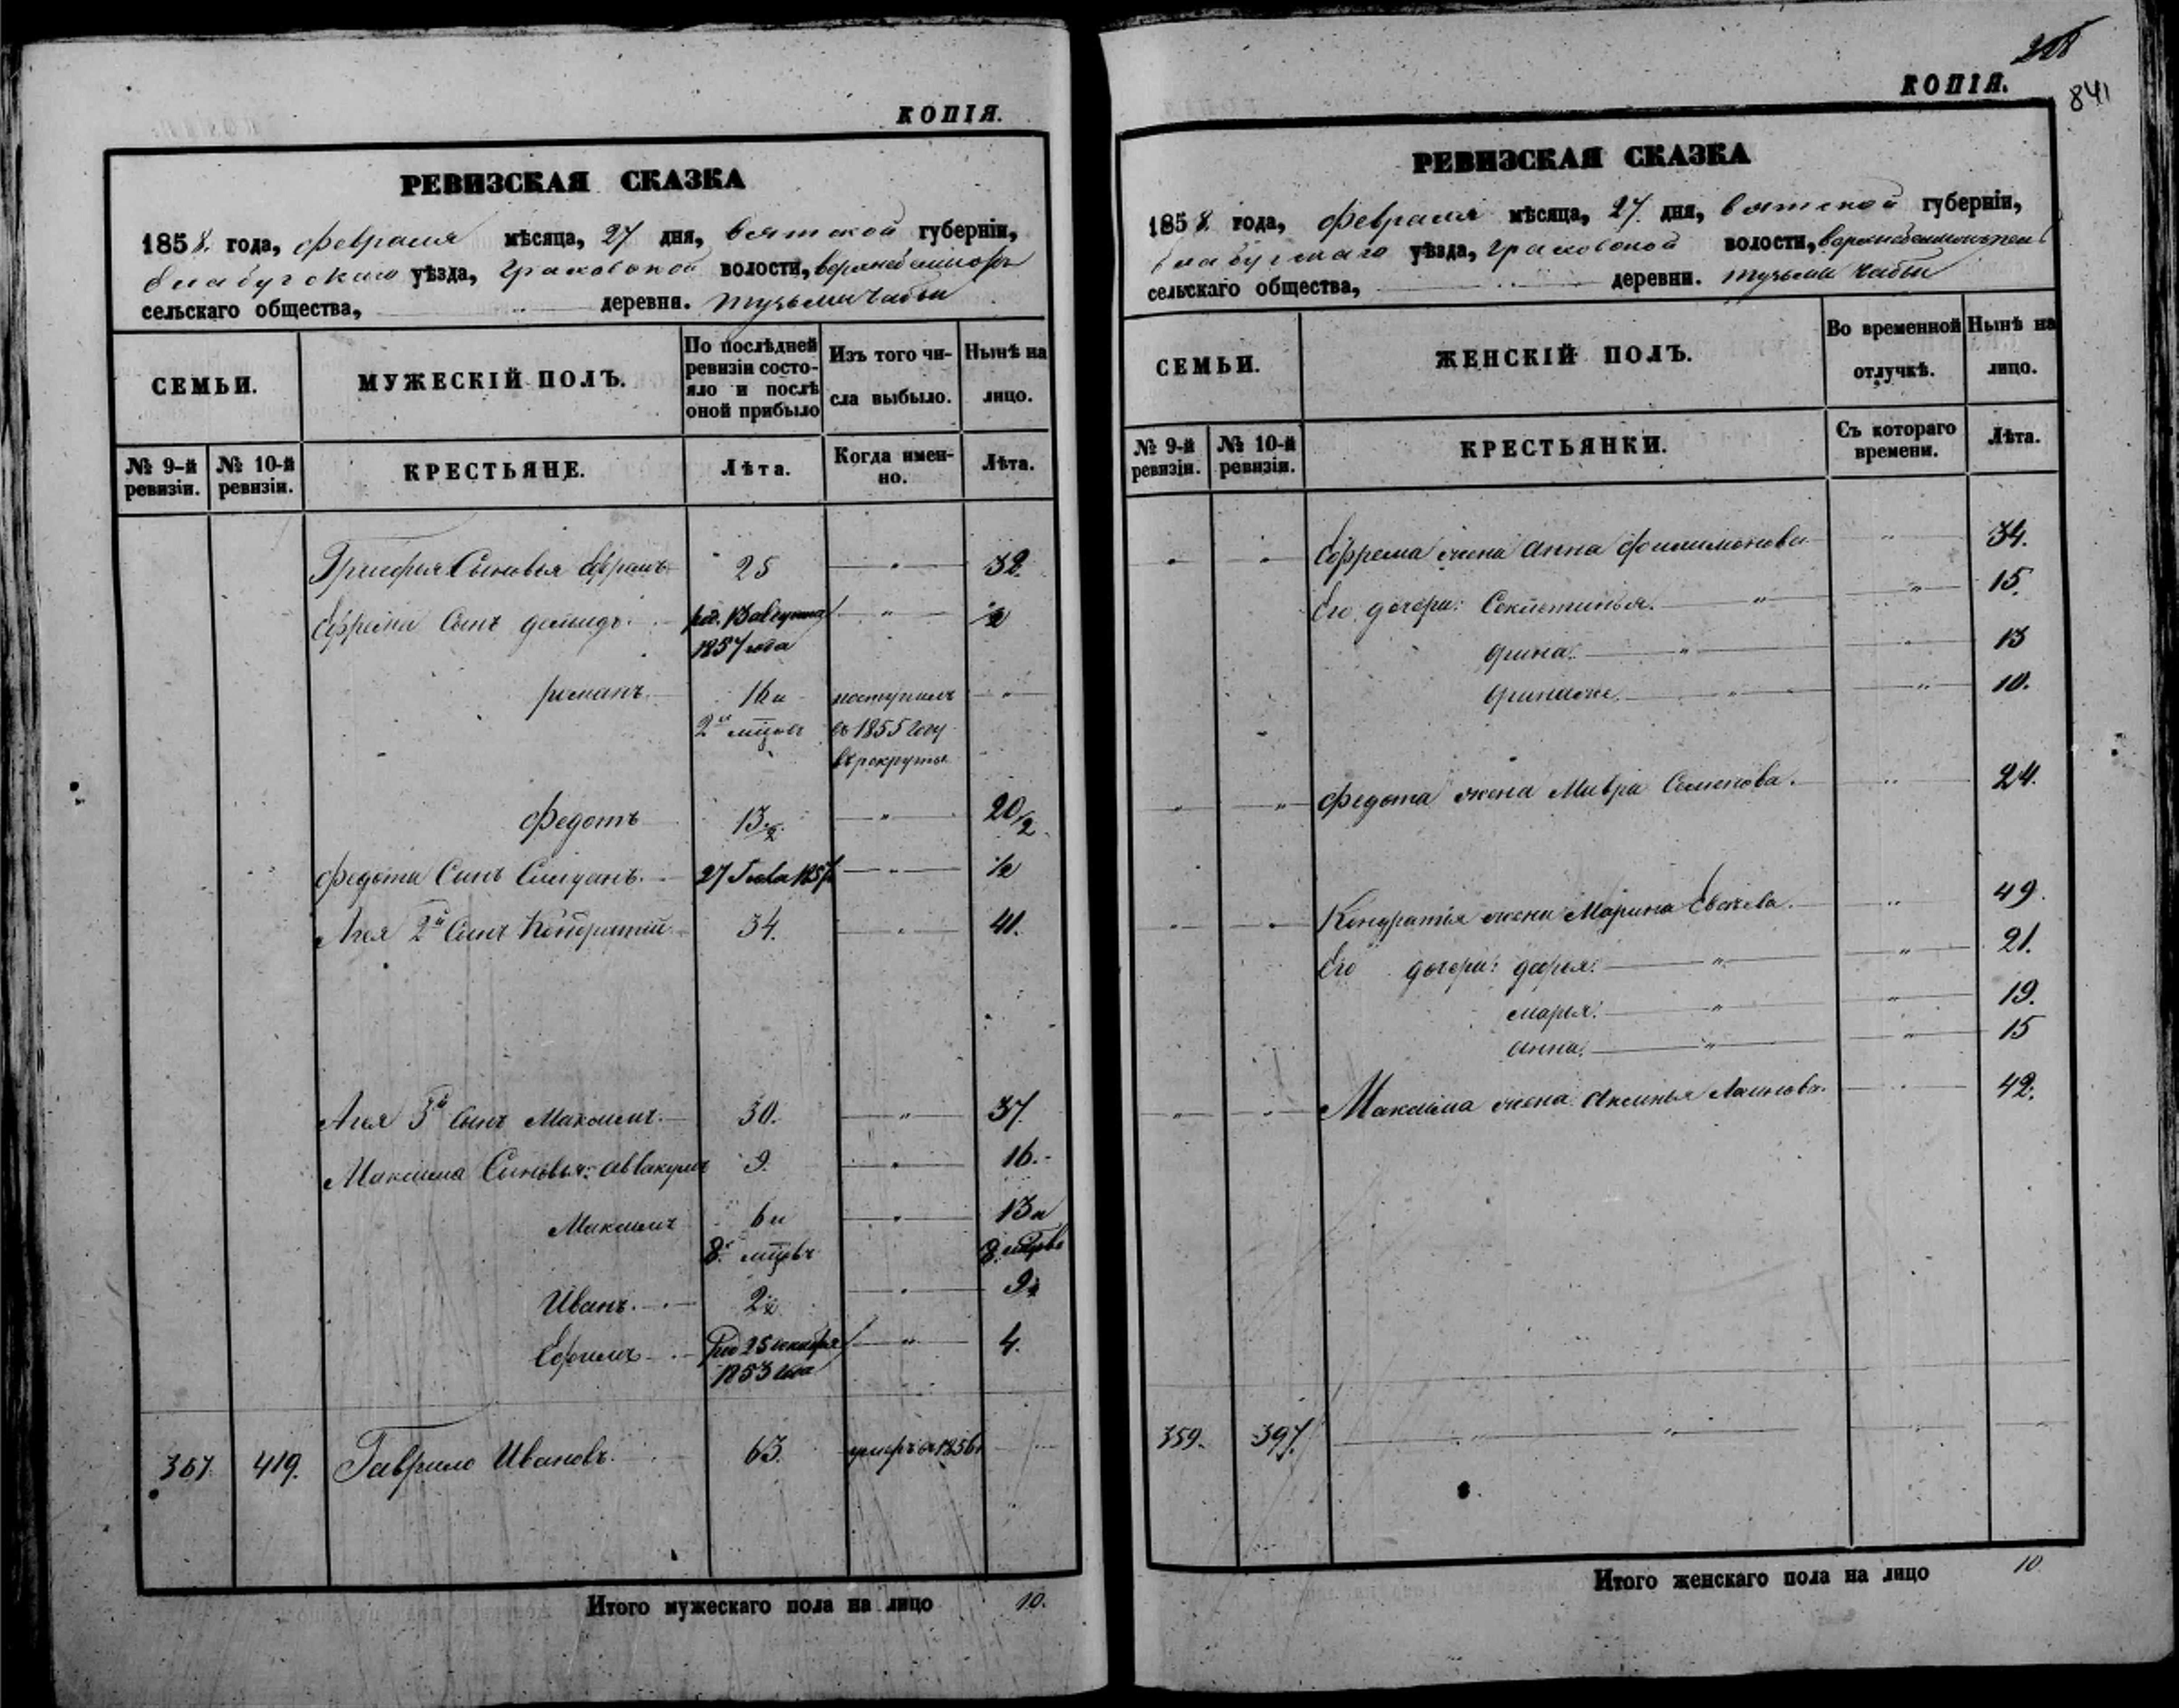 КОПІЯ.
РЕВИЗСКАЯ СКАЗКА
1858. года, февраля мѣсяца, 27 дня, вятской губерніи,
елабугскаго уѣзда, граховской волости,
сельскаго общества, деревни.
СЕМЬИ.
МУЖЕСКІЙ ПОЛЪ.
По послѣдней
ревизіи состо-
яло и послѣ
оной прибыло
Изъ того чи-
сла выбыло.
Нынѣ на
лицо.
№ 9-й
ревизіи.
№ 10-й
ревизіи.
КРЕСТЬЯНЕ.
Лѣта.
Когда имен-
но.
Лѣта.
Сыновья Ефремъ 25 32.
Ефрема Сынъ демидъ. ро. 13 августа 1/2
1857 года
романъ. 16 и поступилъ
2 мцовъ въ 1855 году
в рекруты
Федотъ 13 1/2 20 1/2
Федота Сынъ 27 1857 1/2
Агея 2й Сынъ Кондратій 34. 41.
Агея 3й Сынъ Максимъ. 30. 37.
Максима Сыновья: аввакумъ 9. 16.
Максимъ 6 и 13 и
8 мцовъ 8 мцовъ
Иванъ. 2 1/2 9 1/2
Ефимъ Род 25 1853 года 4.
367. 419. Гаврило Ивановъ. 63. умеръ въ 1856
Итого мужескаго пола на лицо 10.
КОПІЯ.
841
РЕВИЗСКАЯ СКАЗКА
1858. года, февраля мѣсяца, 27. дня, вятской губерніи,
елабугскаго уѣзда, граховской волости,
сельскаго общества, деревни.
СЕМЬИ.
ЖЕНСКІЙ ПОЛЪ.
Во временной
отлучкѣ.
Нынѣ на
лицо.
№ 9-й
ревизіи.
№ 10-й
ревизіи.
КРЕСТЬЯНКИ.
Съ котораго
времени.
Лѣта.
Ефрема жена анна филимонова 34.
Его дочери: 15.
13
10.
Федота жена Мавра Семенова. 24.
Кондратія жена Марина 49.
Его дочери: дарья. 21.
марья. 19.
анна. 15
Максима жена аксинья 42.
359. 397.
Итого женскаго пола на лицо 10